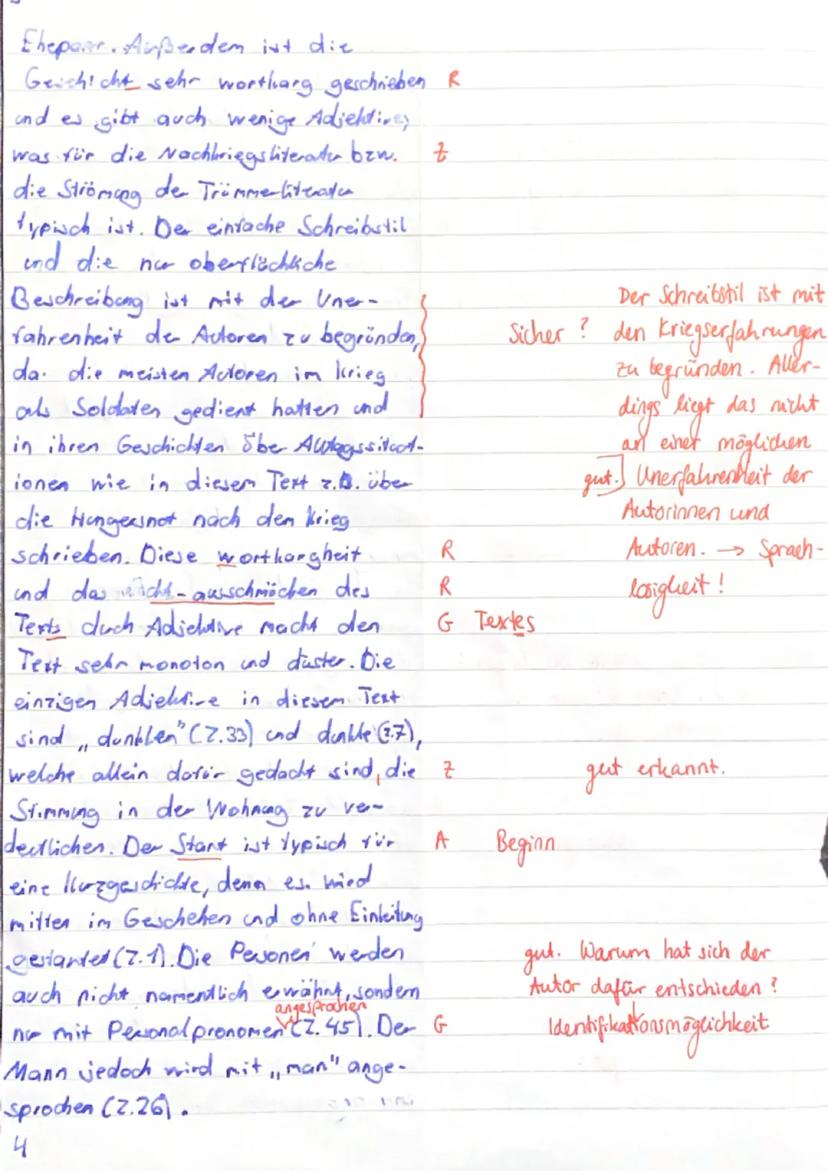 Ehepaar. Außerdem ist die
Geschicht sehr wortharg geschrieben R
und es gibt auch wenige Adjektive,
was für die Nachkriegsliteratur bzw. Z
die Strömung der Trümmerliteratur
typisch ist. Der einfache Schreibstil
und die nur oberflächliche
Beschreibung ist mit der Uner-
fahrenheit der Autoren zu begründen,
da die meisten Autoren im Krieg
als Soldaten gedient hatten und
in ihren Geschichten über Alltagssituat-
ionen wie in diesem Text z.B. über
die Hungersnot nach dem Krieg
schrieben. Diese wortkargheit R
und das nicht-ausschmücken des R
Texts durch Adjektive macht den G Textes
Text sehr monoton und düster. Die
einzigen Adjektive in diesem Text
sind „dunklen" (Z.33) und dunkle (Z.7),
welche allein dafür gedacht sind, die Z
Stimmung in der Wohnung zu ver-
deutlichen. Der Start ist typisch für A Beginn
eine Kurzgeschichte, denn es wird
mitten im Geschehen und ohne Einleitung
gestartet (Z.1). Die Personen werden
auch nicht namentlich erwähnt, sondern
angesprochen
nur mit Personalpronomen (Z.45). Der G
Mann jedoch wird mit „man" ange-
sprochen (Z.26).
4
Sicher?
Der Schreibstil ist mit
den Kriegserfahrungen
zu begründen. Aller-
dings liegt das nicht
an einer möglichen
Unerfahrenheit der
Autorinnen und
Autoren. → Sprach-
losigkeit!
gut.
gut erkannt.
gut. Warum hat sich der
Autor dafür entschieden?
Identifikationsmöglichkeit